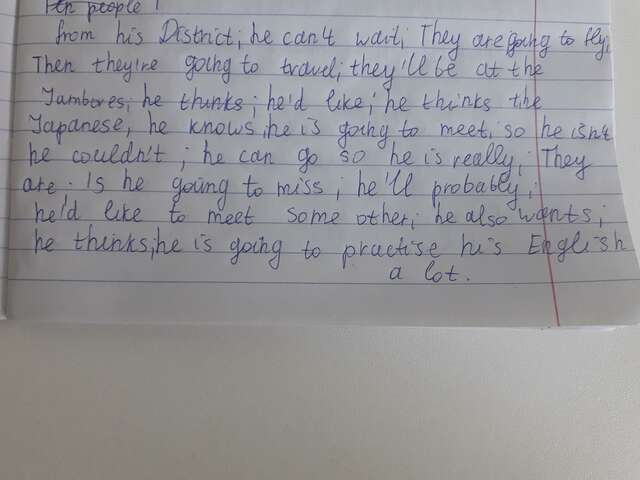 people !
from his District; he can't wait; They are going to fly;
Then they're going to travel; they'll be at the
Jambores; he thinks; he'd like; he thinks the
Japanese, he knows; he is going to meet; so he isn't
he couldn't; he can go so he is really; They
are; Is he going to miss; he'll probably;
he'd like to meet some other; he also wants;
he thinks; he is going to practise his English
a lot.